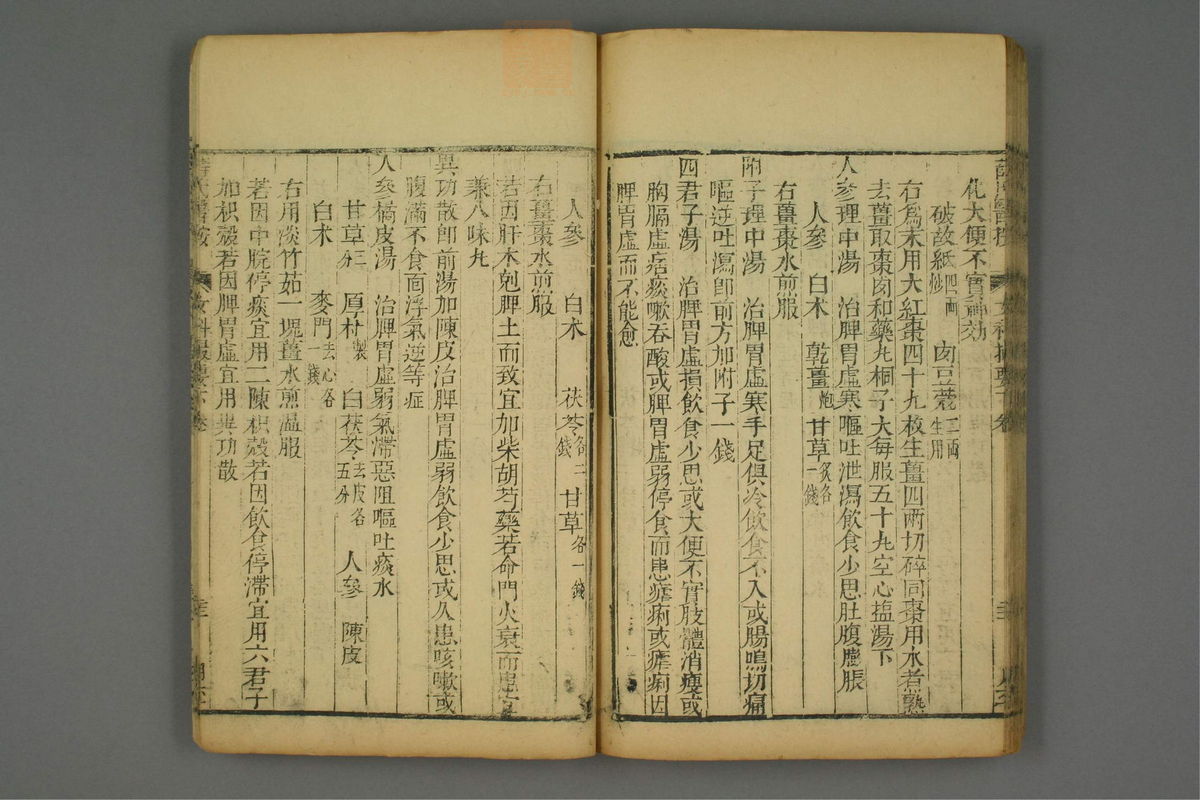 化大便不實神効
破故紙四兩炒　肉豆蔲二兩生用
右爲末用大紅棗四十九枚生薑四兩切碎同棗用水煮熟
去薑取棗肉和藥丸桐子大每服五十丸空心塩湯下
人參理中湯　治脾胃虛寒嘔吐泄瀉飲食少思肚腹膨脹
人參　白术　乾薑炮　甘草炙各一錢
右薑棗水煎服
附子理中湯　治脾胃虛寒手足俱冷飲食不入或腸鳴切痛
嘔逆吐瀉卽前方加附子一錢
四君子湯　治脾胃虛損飲食少思或大便不實肢體消瘦或
胸膈虛痞痰嗽吞酸或脾胃虛弱停食而患瘧痢或瘧痢因
脾胃虛而不能愈
人參　白术　茯苓各二錢　甘草各一錢
右薑棗水煎服
若因肝木剋脾土而致宜加柴胡芍藥若命門火衰而患宜
兼八味丸
異功散卽前湯加陳皮治脾胃虛弱飲食少思或久患咳嗽或
腹滿不食面浮氣逆等症
人參橘皮湯　治脾胃虛弱氣滯惡阻嘔吐痰水
甘草三分　厚朴製　白茯苓去皮各五分　人參　陳皮
白术　麥門去心各一錢
右用淡竹茹一塊薑水煎溫服
若因中脘停痰宜用二陳枳殼若因飲食停滯宜用六君子
加枳殼若因脾胃虛宜用異功散
女科撮要下卷